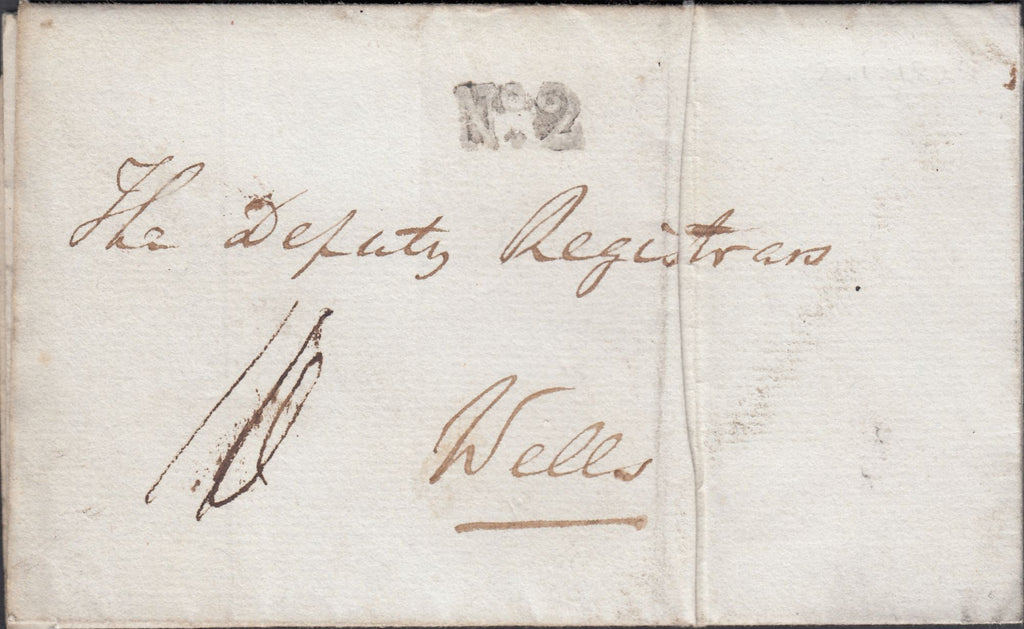 No. 2
The Deputy Registrars
10
Wells